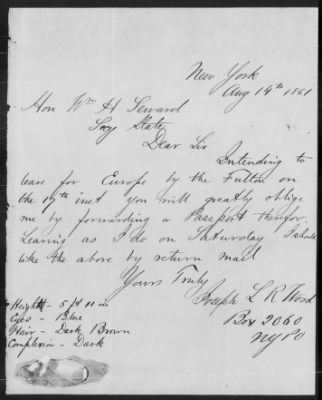 New York
Aug 14th 1861
Hon Wm H Seward
Secy State
Dear Sir
Intending to
leave for Europe by the Fulton on
the 17th inst you will greatly oblige
me by forwarding a Passport therefor.
Leaving as I do on Saturday I should
like the above by return mail
Yours Truly
Joseph L R Wood
Box 2060
NYPO
Height - 5 ft 11 in
Eyes - Blue
Hair - Dark Brown
Complexion - Dark